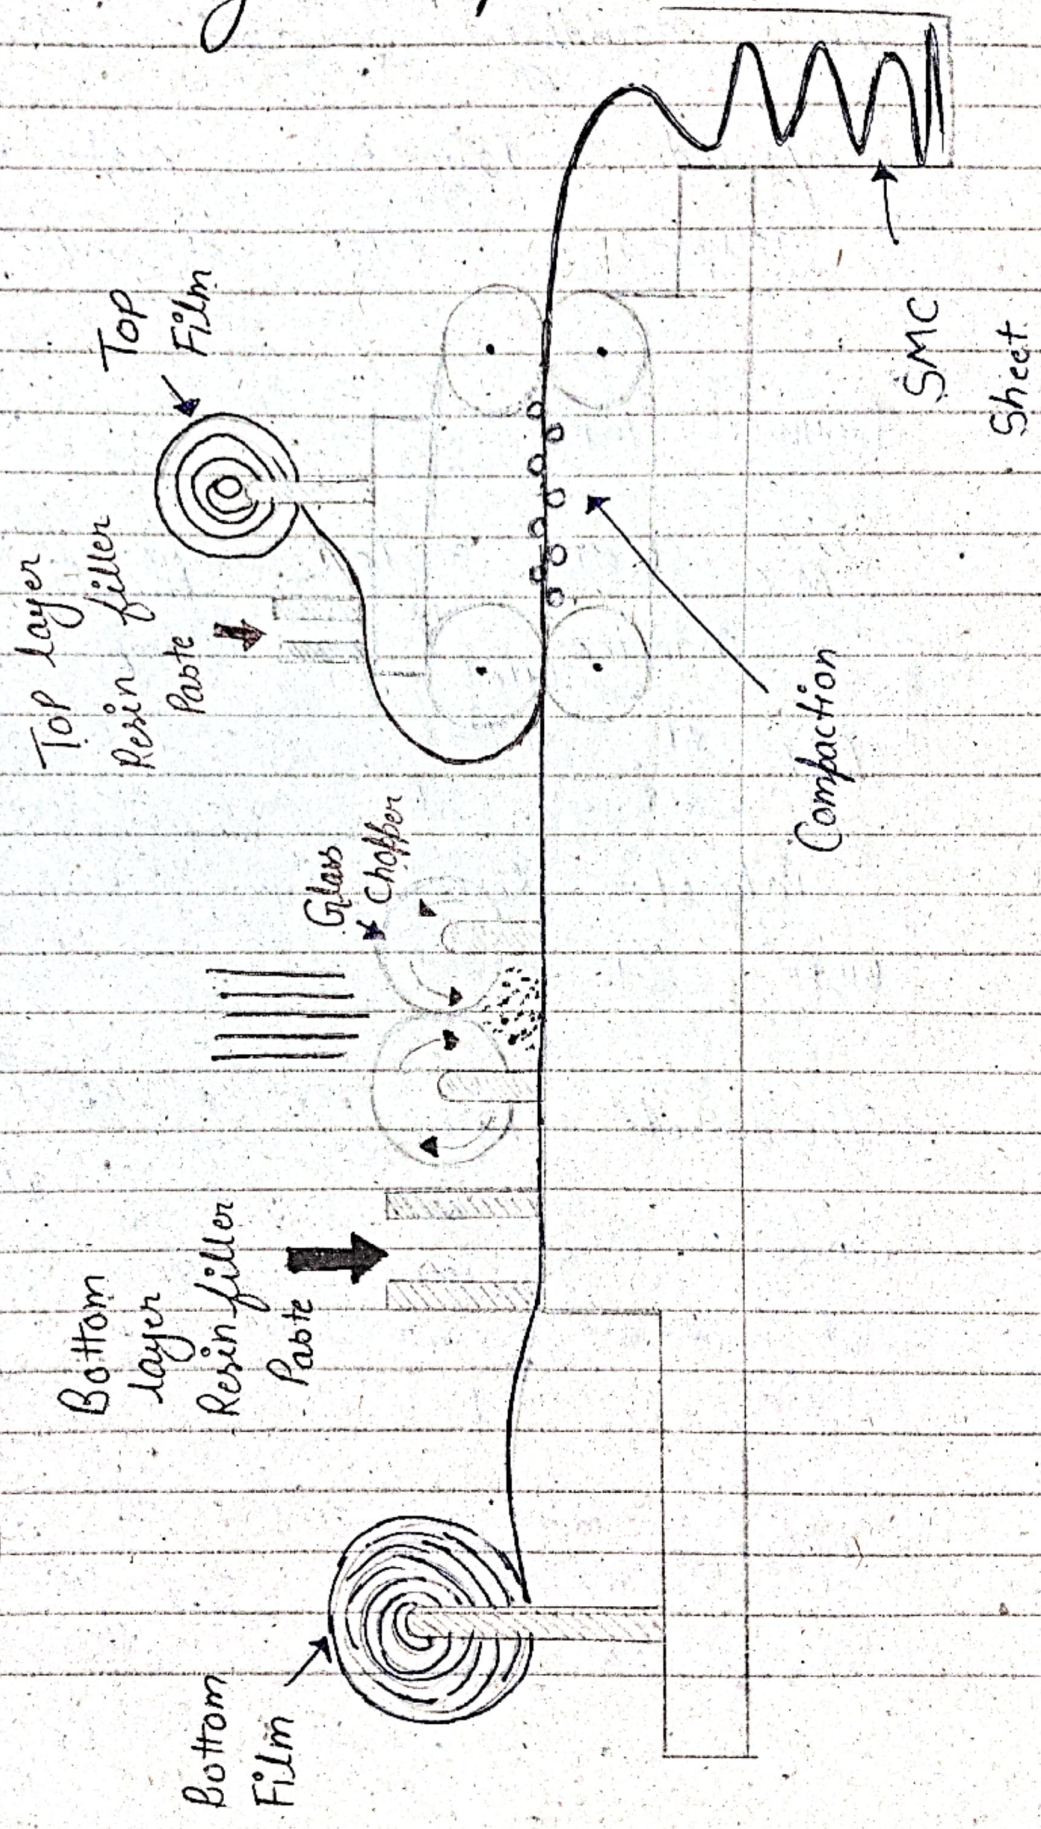 Bottom
Film
Bottom
layer
Resin filler
Paste
Glass
Chopper
Top layer
Resin filler
Paste
Top
Film
Compaction
SMC
Sheet